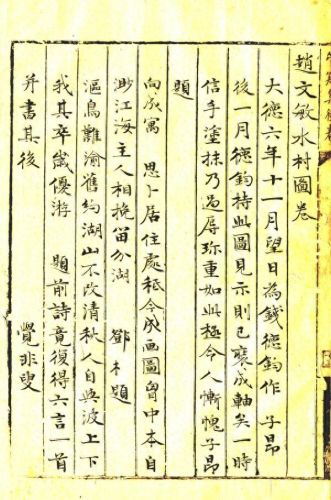 趙文敏水村圖卷
大德六年十一月望日為錢德鈞作 子昂
後一月德鈞持此圖見示則已裝成軸矣一時
信手塗抹乃過辱珍重如此極令人慚愧子昂
題
向成寓 思卜居住處秪今成画圖胷中本自
渺江海主人相挽留分湖 鄧木題
漚鳥難渝舊約湖山不改清秋人自與波上下
我其卒歲優游 題前詩竟復得六言一首
并書其後 覺非叟